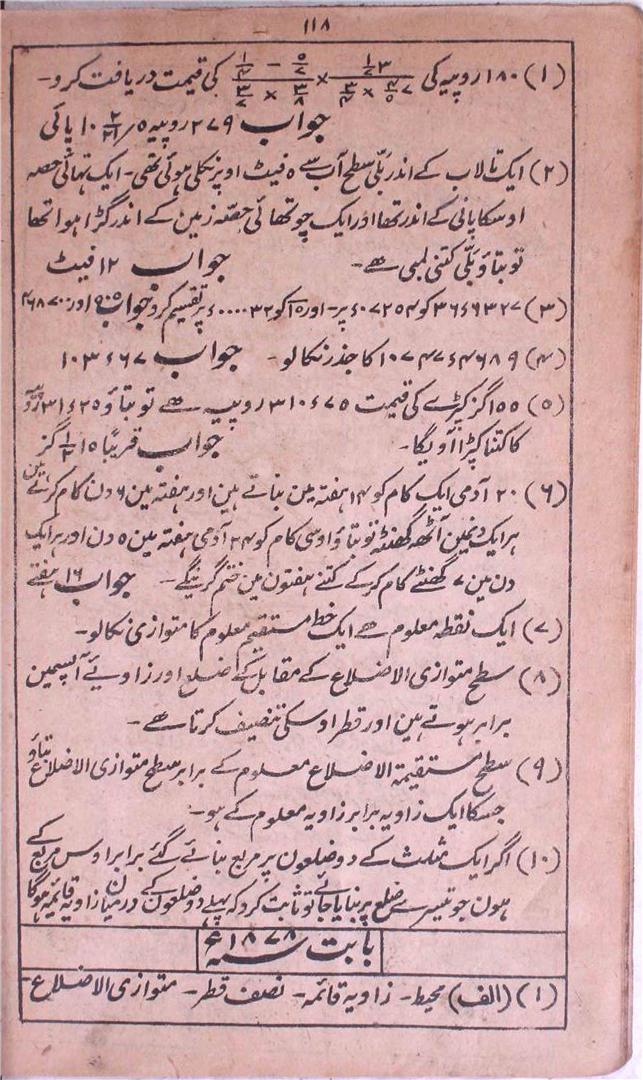 ۱۱۸
(۱) ۱۸۰ روپیہ کی ۳ ۱/۲ / ۳/۴ × ۷ ۴/۵ × ۵/۷ − ۱/۴ / ۳/۷ × ۳/۸ کی قیمت دریافت کرو۔
جواب ۲۷۹ روپیہ ۵/ ۱۰ ۲/۲۱ پائی
(۲) ایک تالاب کے اندر بلّی سطح آب سے ۵ فیٹ اوپر نکلی ہوئی تھی۔ ایک تہائی حصہ
اوسکا پانی کے اندر تھا اور ایک چوتھائی حصّہ زمین کے اندر گڑا ہوا تھا
تو بتاؤ بلّی کتنی لمبی ہے۔ جواب ۱۲ فیٹ
(۳) ۳۶۶۳۲۷ کو ۰۷۲۵۴ء پر۔ اور ۱۵ کو ۰۰۰۰۳۲ء پر تقسیم کرو جواب ۹۰۵ اور ۴۶۸۷۰۰
(۴) ۱۰۷۴۷ء۴۶۸۹ کا جذر نکالو۔ جواب ۱۰۳ء۶۷
(۵) ۱۵۵ گز کپڑے کی قیمت ۳۱۰ء۷۵ روپیہ ہے تو بتاؤ ۳۱ء۲۵ روپیہ
کا کتنا کپڑا آویگا۔ جواب قریبًا ۱۵ ۱/۲ گز
(۶) ۲۰ آدمی ایک کام کو ۱۴ ہفتہ مین بناتے ہین اور ہفتہ مین ۶ دن کام کرتے ہین
ہر ایک دنمین آٹھ گھنٹہ تو بتاؤ اوسی کام کو ۲۴ آدمی ہفتہ مین ۵ دن اور ہر ایک
دن مین ۷ گھنٹے کام کر کے کتنے ہفتون مین ختم کرینگے۔ جواب ۱۶ ہفتے
(۷) ایک نقطہ معلوم سے ایک خط مستقیم معلوم کا متوازی نکالو۔
(۸) سطح متوازی الاضلاع کے مقابل کے اضلع اور زاویے آپسمین
برابر ہوتے ہین اور قطر اوسکی تنصیف کرتا ہے۔
(۹) سطح مستقیمۃ الاضلاع معلوم کے برابر سطح متوازی الاضلاع بتاؤ
جسکا ایک زاویہ برابر زاویہ معلوم کے ہو۔
(۱۰) اگر ایک مثلث کے دو ضلعون پر مربع بنائے گئے برابر اوس مربع کے
ہون جو تیسرے ضلع پر بنایا جائے تو ثابت کرو کہ پہلے دو ضلعون کے درمیان زاویہ قائمہ ہوگا
بابت سنہ ۱۸۷۸ء
(۱) (الف) محیط۔ زاویہ قائمہ۔ نصف قطر۔ متوازی الاضلاع۔